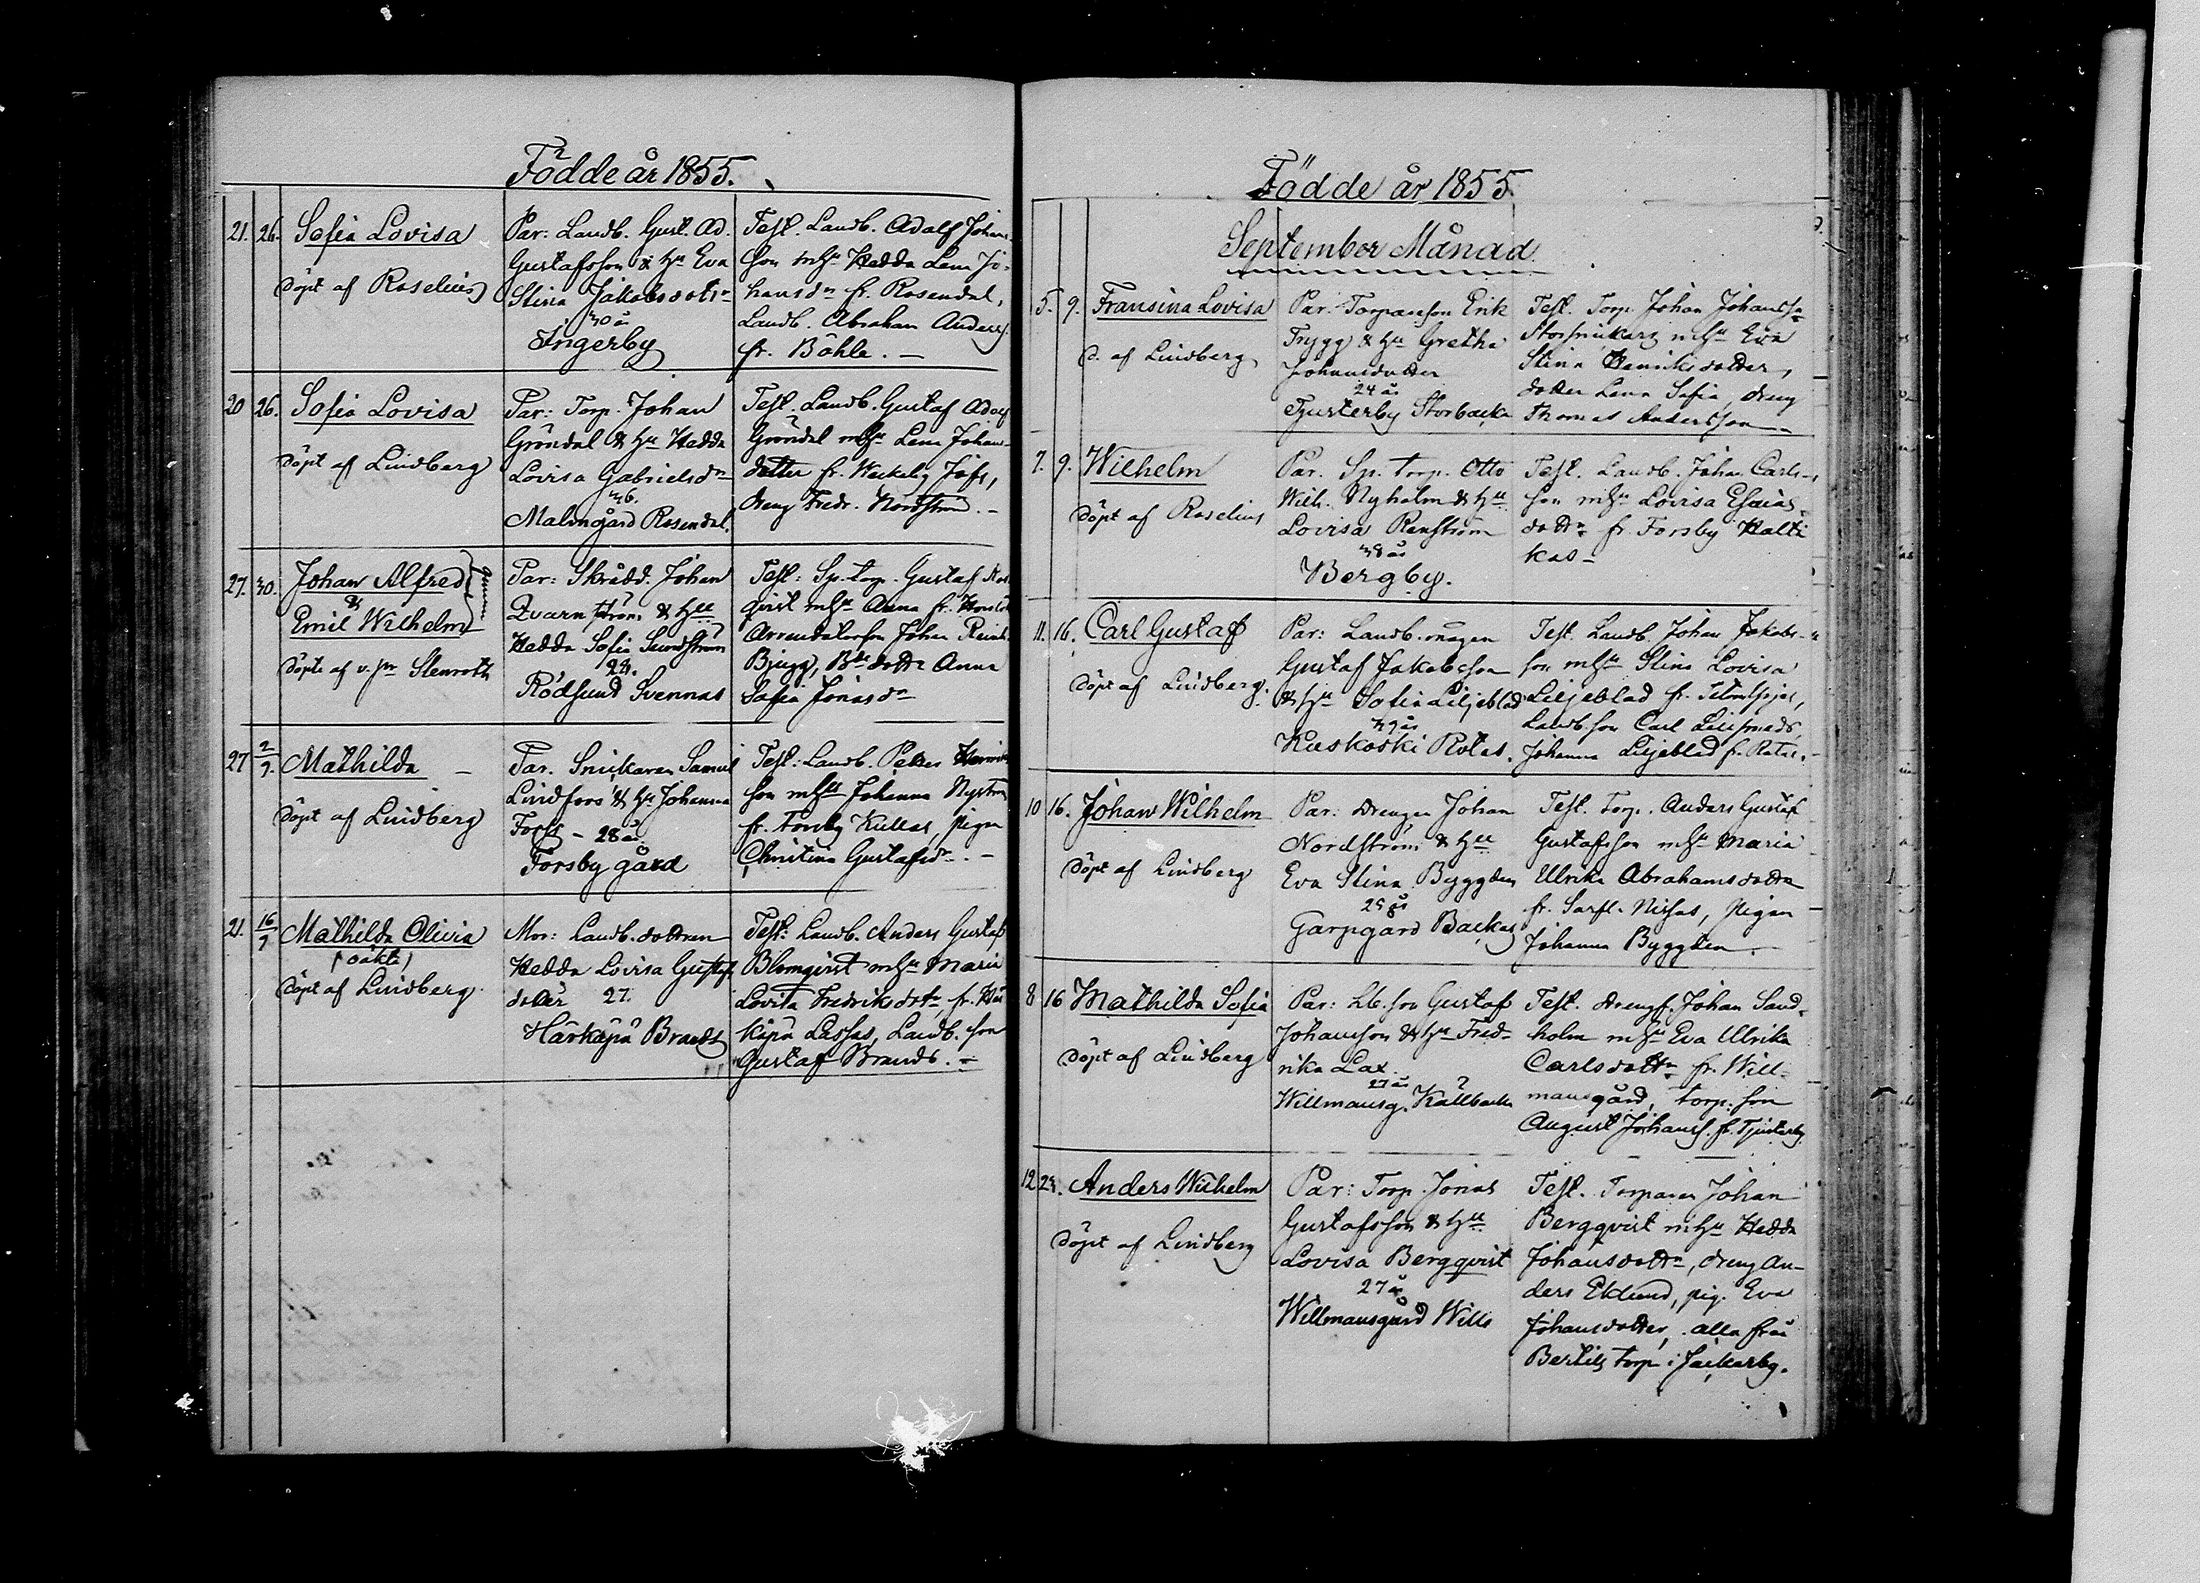 Födde år 1855.
21. 26. Sofia Lovisa
döpt af Roselius
Par: Landb. Gust. Ad.
Gustafsson & hu Eva
Stina Jakobsdotr
30 år
Ingerby
Test. Landb. Adolf Johans-
son mhu Hedda Lena Jo-
hansdr fr. Rosendal,
Landb. Abraham Anderss
fr. Böhle. –
20 26. Sofia Lovisa
döpt af Lindberg
Par: Torp. Johan
Gröndal & hu Hedda
Lovisa Gabrielsdr
36.
Malmgård Rosendal.
Test. Landb. Gustaf Adolf
Gröndal mhu Lena Johans-
dotter fr. Weckeby Jofs,
dreng Fredr. Nordström. –
27. 30. Johan Alfred
&
Emil Wilhelm
döpte af v. pr Stenroth
Par: Skrädd. Johan
Qvarnström & hu
Hedda Sofia Sundström
28.
Rödsund Svennas
Test: Sp. torp. Gustaf
qvist mhu Anna fr.
Arrendatorson Johan
Bjugg, Bdedottr Anna
Sofia Jonasdr
27 2/9. Mathilda –
döpt af Lindberg
Par. Snickaren Samuel
Lindfors & hu Johanna
Forss – 28 år
Forsby gård
Test: Landb. Petter Henriks
son mhu Johanna Nyström
fr. Forsby Kullas, pigan
Christina Gustafsdr. –
21. 16/9 Mathilda Olivia
(oäkta)
döpt af Lindberg.
Mor: Landb. dottren
Hedda Lovisa Gustafs
dotter 27.
Härkäpä Brands
Test: Landb. Anders Gustaf
Blomqvist mhu Maria
Lovisa Fredriksdotr, fr. Här
käpä Lassas, Landb. son
Gustaf Brands. –
Födde år 1855
September Månad
5. 9. Fransina Lovisa
d. af Lindberg
Par: Torpareson Erik
Trygg & hu Gretha
Johansdotter
24 år
Tjusterby Storbacka
Test. Torp. Johan Johanss
Storsnickars mhu Eva
Stina Henriksdotter,
dotter Lena Sofia, dreng
Thomas Andersson –
7. 9. Wilhelm
döpt af Roselius
Par. Sp. torp. Otto
Wilh. Nyholm & hu
Lovisa Renström
38 år
Bergby.
Test. Landb. Johan Carls-
son mhu Lovisa Esaias
dottr fr. Forsby Halti
kas –
11. 16. Carl Gustaf
döpt af Lindberg.
Par: Landb. mågen
Gustaf Jakobsson
& hu Sofia Liljeblad
39 år
Kuskoski Rotas.
Test. Landb. Johan Jakobs-
son mhu Stina Lovisa
Liljeblad fr.
Landb. son Carl
Johanna Liljeblad fr. Rotas. –
10 16. Johan Wilhelm
döpt af Lindberg
Par: Drengen Johan
Nordström & hu
Eva Stina Byggden
25 år
Garpgård Backas
Test. Torp. Anders Gustaf
Gustafsson mhu Maria
Ulrika Abrahamsdottr
fr. Sarfl. Nissas, pigan
Johanna Byggden.
8 16 Mathilda Sofia
döpt af Lindberg
Par: Lb. son Gustaf
Johansson & hu Fred-
rika Lax.
27 år
Willmansg. Källbacka
Test. drengs. Johan Sand-
holm mhu Eva Ulrika
Carlsdottr fr. Will-
mansgård, torp. son
August Johanss. fr. Tjusterby
12 23. Anders Wilhelm
döpt af Lindberg
Par: Torp. Jonas
Gustafsson & hu
Lovisa Bergqvist
27 år
Willmansgård Wills
Test. Torparen Johan
Bergqvist mhu Hedda
Johansdottr, dreng An-
ders Eklund, pig. Eva
Johansdotter, alla från
Bertils torp i Jackarby.